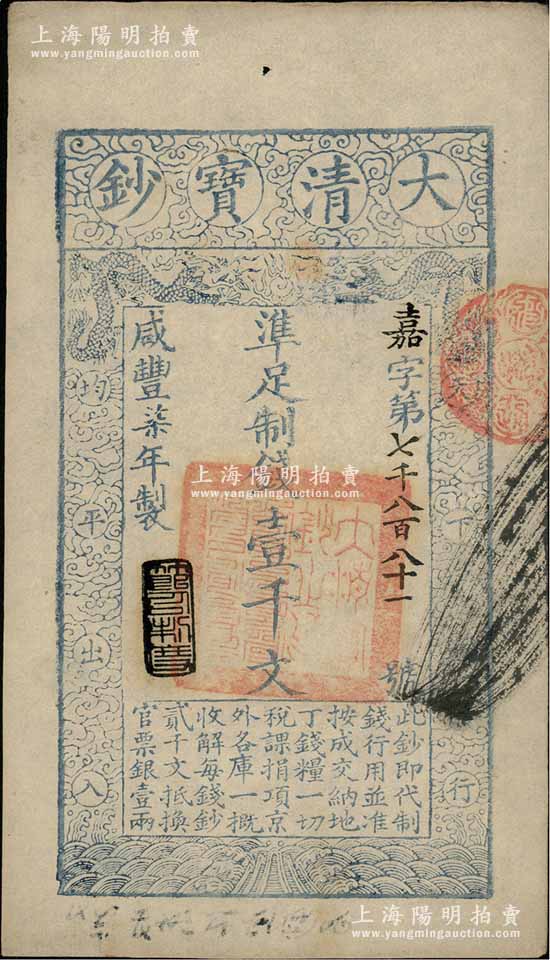 上海陽明拍賣
www.yangmingauction.com
上海陽明拍賣
www.yangmingauction.com
大清寶鈔
天下
行
均平出入
嘉字第七千八百八十一號
準足制錢壹千文
咸豐柒年製
此鈔即代制
錢行用並准
按成交納地
丁錢糧一切
稅課捐項京
外各庫一概
收解每錢鈔
貳千文抵換
官票銀壹兩
上海陽明拍賣
www.yangmingauction.com
上海陽明拍賣
www.yangmingauction.com